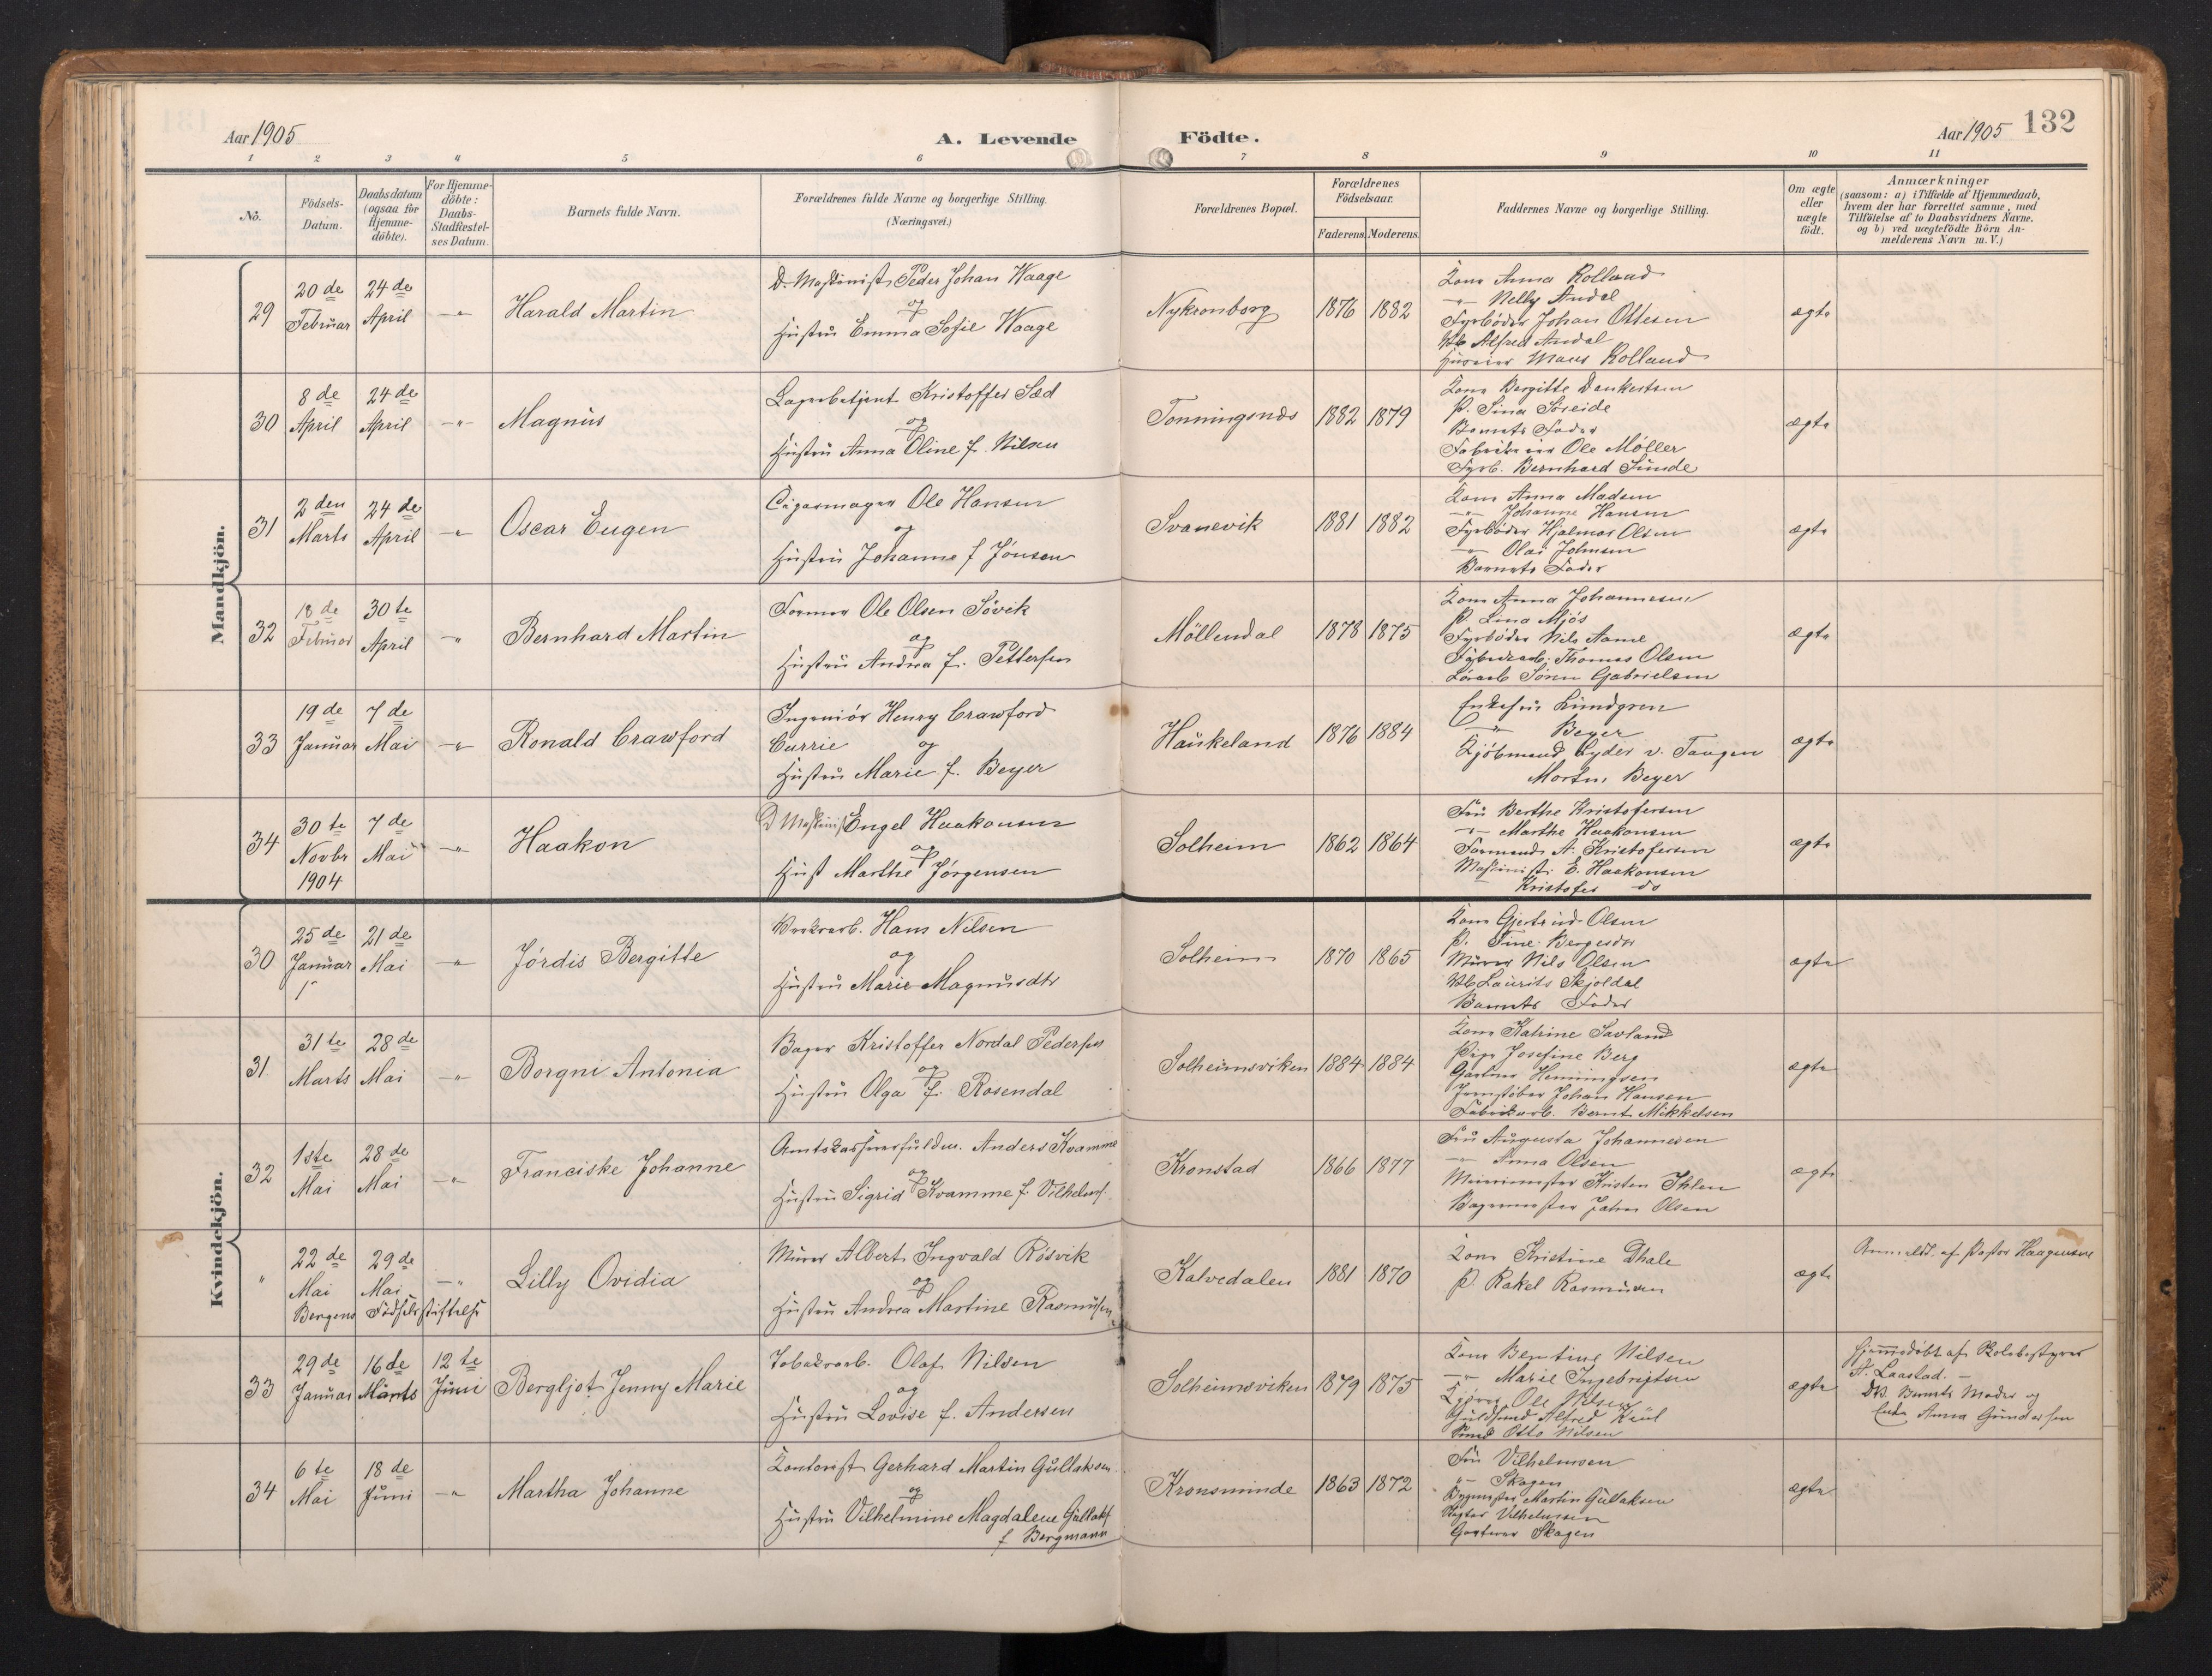 Aar 1905
A. Levende
Födte.
Aar 1905
132
1 2 3 4 5 6 7 8 9 10 11
Nö.
Födsels-
Datum.
Daabsdatum
(ogsaa for
Hjemme-
döbte).
For Hjemme-
döbte:
Daabs-
Stadfæstel-
ses Datum.
Barnets fulde Navn.
Forældrenes fulde Navne og borgerlige Stilling.
(Næringsvei.)
Forældrenes Bopæl.
Forældrenes
Födselsaar.
Faderens. Moderens.
Faddernes Navne og borgerlige Stilling.
Om ægte
eller
uægte
födt.
Anmærkninger
(saasom: a) i Tilfælde af Hjemmedaab,
hvem der har forrettet samme, med
Tilföielse af to Daabsvidners Navne.
og b) ved uægtefödte Börn An-
melderens Navn m. V.)
Mandkjön.
29
20de
Februar
24de
April
-"-
Harald Martin
D. Maskinist Peder Johan Waage
og
Hustru Emma Sofie Waage
Nykronborg
1876 1882
Kone Anna Rolland
-"- Nelly Andal
Fyrböder Johan Ottesen
Alfred Andal
Huseier Mons Rolland
ægte
30
8de
April
24de
April
-"-
Magnus
Lagerbetjent Kristoffer Sæd
og
Hustru Anna Oline f. Nilsen
Tonningsnds
1882 1879
Kone Bergitte Dankertsen
P. Sina Söreide
Barnets Fader
Ole Möller
Fyrb. Bernhard Sunde
ægte
31
2den
Marts
24de
April
-"-
Oscar Eugen
Cigarmager Ole Hansen
og
Hustru Johanne f Jönsen
Svanevik
1881 1882
Kone Anna Madsen
-"- Johanne Hansen
Fyrböder Hjalmar Olsen
-"- Olai Johnsen
Barnets Fader
ægte
32
18de
Februar
30te
April
-"-
Bernhard Martin
Former Ole Olsen Sövik
og
Hustru Andrea f. Pettersen
Möllendal
1878 1875
Kone Anna Johannesen
P. Lina Mjös
Fyrböder Nils Aame
Thomas Olsen
Sören Gabrielsen
ægte
33
19de
Januar
7de
Mai
-"-
Ronald Crawford
Ingeniör Henry Crawford
Currie og
Hustru Marie f. Beyer
Haukeland
1876 1884
Enkefru Lundgren
-"- Beyer
Kjöbmand Lyder v. Tangen
Morten Beyer
ægte
34
30te
Novbr
1904
7de
Mai
-"-
Haakon
D Maskinist Engel Haakonsen
og
Hust Marthe f Jörgensen
Solheim
1862 1864
Fru Berthe Kristofersen
-"- Marthe Haakonsen
Formand A. Kristofersen
Maskinist E. Haakonsen
Kristofer do
ægte
Kvindekjön.
30
25de
Januar
21de
Mai
-"-
Jördis Bergitte
Hans Nilsen
og
Hustru Marie Magnusdtr
Solheim
1870 1865
Kone Gjertrud Olsen
P. Tine Bergesdtr
Murer Nils Olsen
Laurits Skjoldal
Barnets Fader
ægte
31
31te
Marts
28de
Mai
-"-
Borgni Antonia
Bager Kristoffer Nordal Pedersen
og
Hustru Olga f. Rosendal
Solheimsviken
1884 1884
Kone Katrine Savland
Pige Josefine Berg
Gartner Henningsen
Jernstöber Johan Hansen
Fabrikarb. Bernt Mikkelsen
ægte
32
1ste
Mai
28de
Mai
-"-
Franciske Johanne
Amtskassererfuldm. Anders Kvamme
og
Hustru Sigrid Kvamme f. Vilhelms.
Kronstad
1866 1877
Fru Augusta Johannesen
-"- Anna Olsen
Kristen Ihlen
Bagermester John Olsen
ægte
"
22de
Mai
29de
Mai
-"-
Bergens Födselsstiftelse
Lilly Ovidia
Murer Albert Ingvald Rösvik
og
Hustru Andrea Martine Rasmussen
Kalvedalen
1881 1870
Kone Kristine Dhale
P. Rakel Rasmussen
ægte
Anmeldt af Pastor Haagensen
33
29de
Januar
16de
Marts
12te
Juni
Bergljot Jenny Marie
Tobakarb. Olaf Nilsen
og
Hustru Lovise f. Andersen
Solheimsviken
1879 1875
Kone Berntine Nilsen
-"- Marie Ingebrigtsen
Ole Nilsen
Guldsmed Alfred Krül
Smed Otto Nilsen
ægte
Hjemmedöbt af Skolebestyrer
A. Laastad. -
DV. Barnets Moder og
Enke Anna Gundersen
34
6te
Mai
18de
Juni
-"-
Martha Johanne
Kontorist Gerhard Martin Gullaksen
og
Hustru Vilhelmine Magdalene Gullaks
f Bergmann
Kronsminde
1863 1872
Fru Vilhelmsen
"- Skagen
Bygmester Martin Gullaksen
Vilhelmsen
Gartner Skagen
ægte